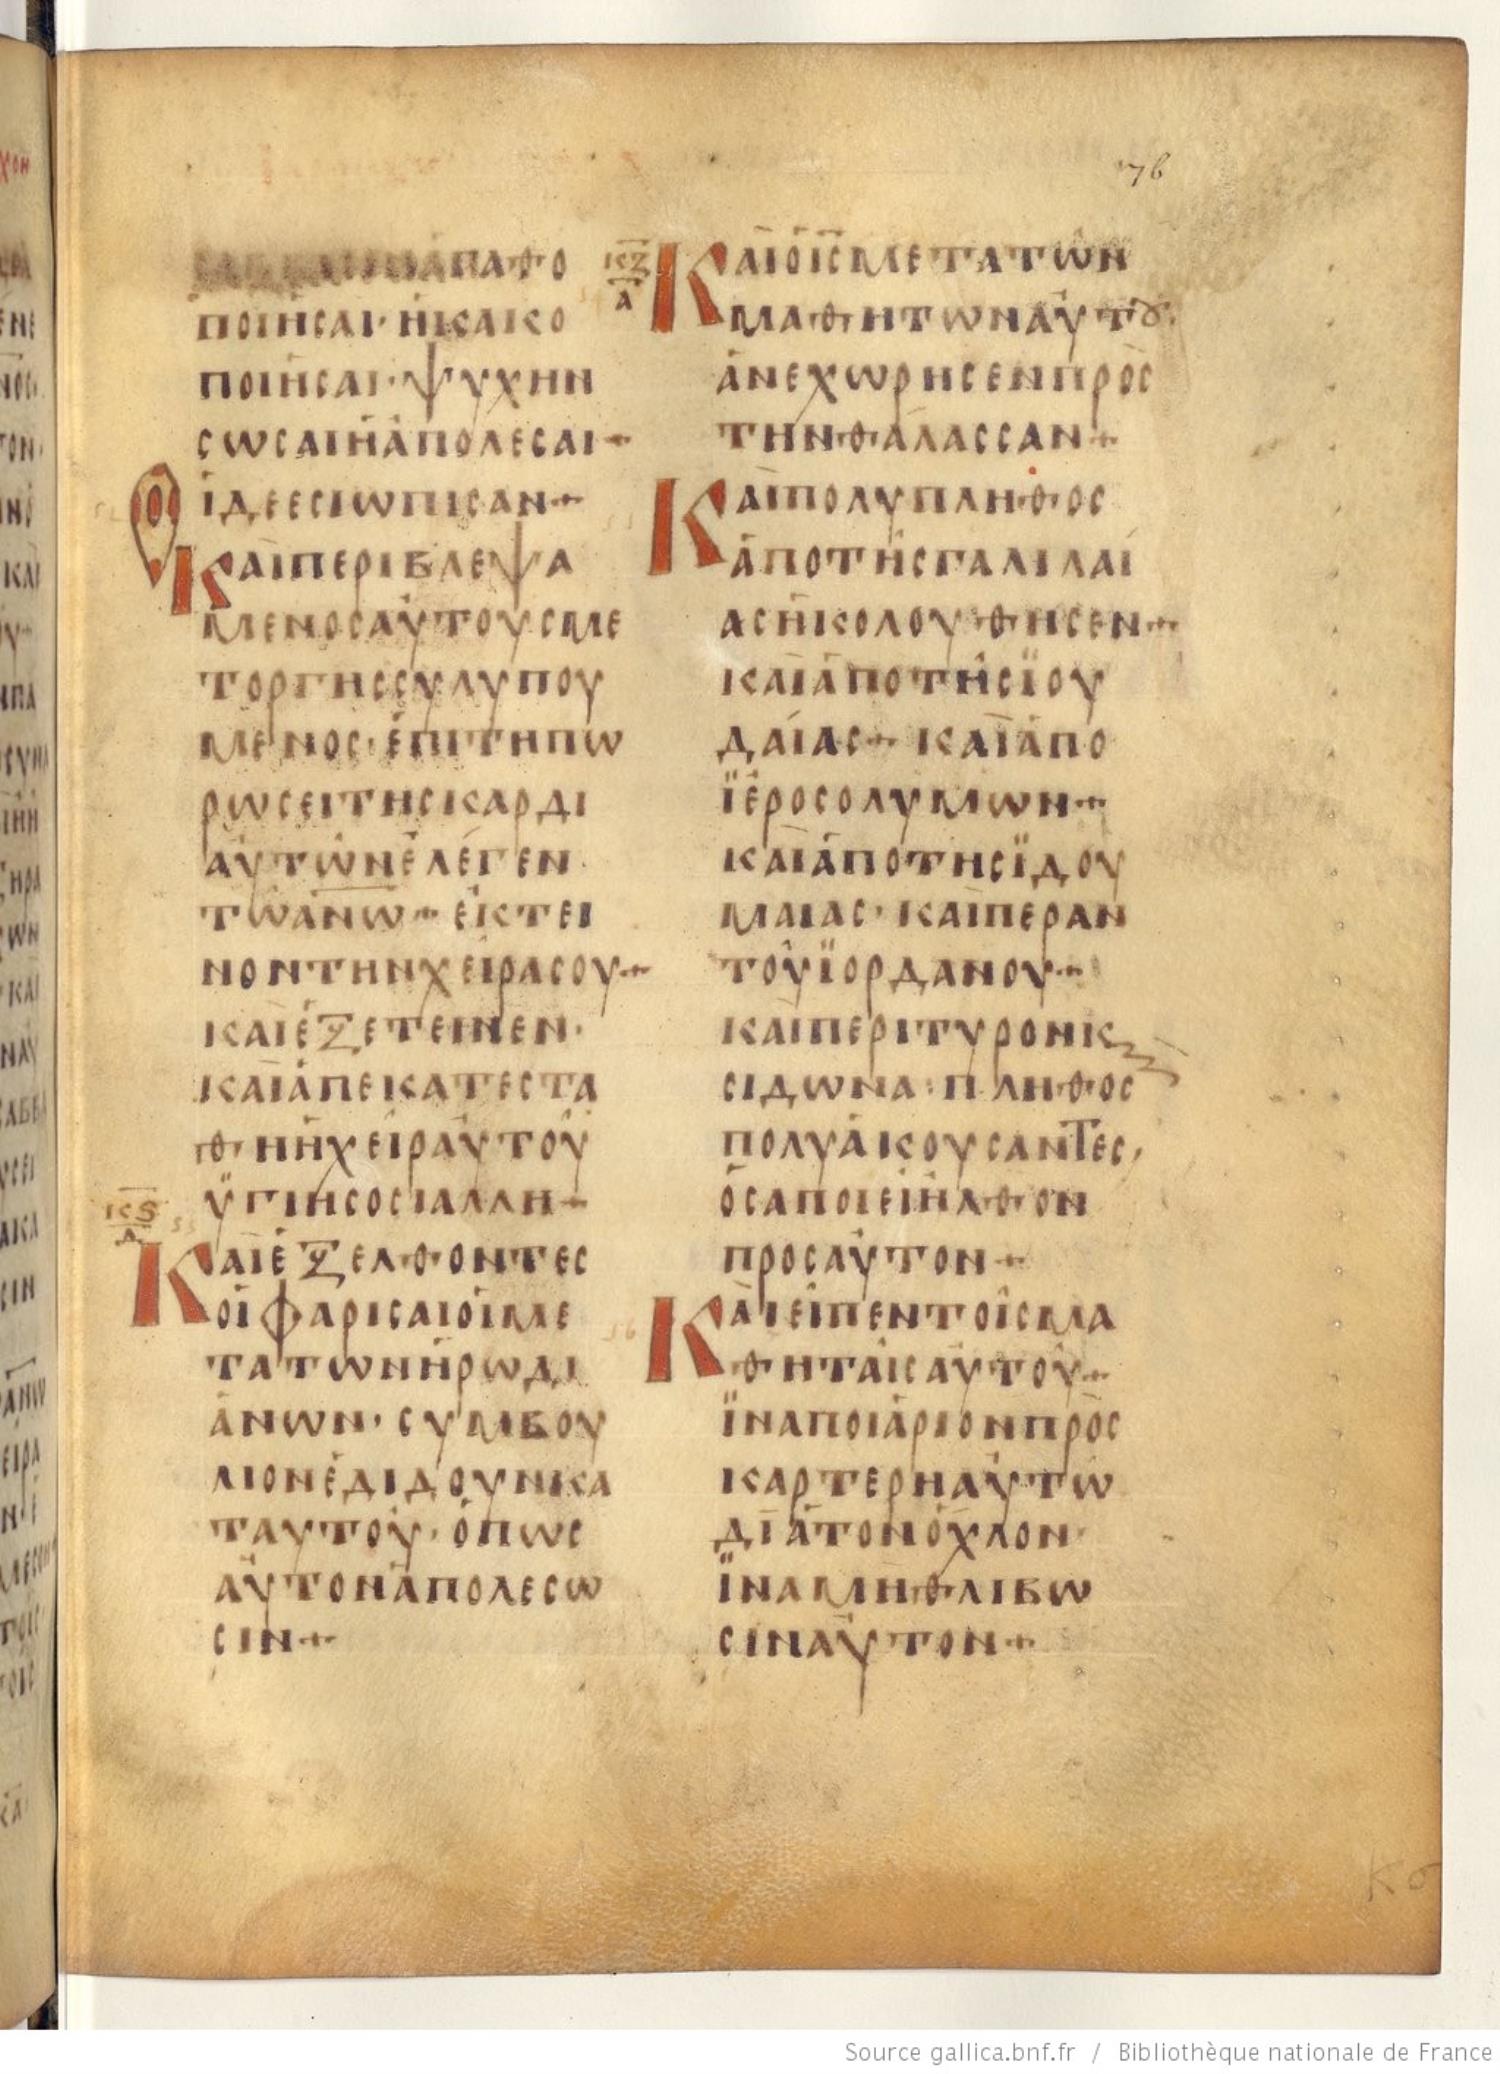 76
ΑΓΑΘΟ
ΠΟΙΗΣΑΙ· Η ΚΑΚΟ
ΠΟΙΗΣΑΙ· ΨΥΧΗΝ
ΣΩΣΑΙ Η ΑΠΟΛΕΣΑΙ+
ΟΙ ΔΕ ΕΣΙΩΠΙΣΑΝ+
ΚΑΙ ΠΕΡΙΒΛΕΨΑ
ΜΕΝΟΣ ΑΥΤΟΥΣ ΜΕ
Τ ΟΡΓΗΣ ΣΥΛΥΠΟΥ
ΜΕΝΟΣ· ΕΠΙ ΤΗ ΠΩ
ΡΩΣΕΙ ΤΗΣ ΚΑΡΔΙ
ΑΥΤΩΝ ΕΛΕΓΕΝ
ΤΩ ΑΝΩ+ ΕΚΤΕΙ
ΝΟΝ ΤΗΝ ΧΕΙΡΑ ΣΟΥ+
ΚΑΙ ΕΞΕΤΕΙΝΕΝ·
ΚΑΙ ΑΠΕΚΑΤΕΣΤΑ
ΘΗ Η ΧΕΙΡ ΑΥΤΟΥ
ΫΓΙΗΣ ΟΣ Ι ΑΛΛΗ+
ΚϚ
Α
ΚΑΙ ΕΞΕΛΘΟΝΤΕΣ
ΟΙ ΦΑΡΙΣΑΙΟΙ ΜΕ
ΤΑ ΤΩΝ ΗΡΩΔΙ
ΑΝΩΝ· ΣΥΜΒΟΥ
ΛΙΟΝ ΕΔΙΔΟΥΝ ΚΑ
Τ ΑΥΤΟΥ· ΟΠΩΣ
ΑΥΤΟΝ ΑΠΟΛΕΣΩ
ΣΙΝ+
ΚΖ
Α
ΚΑΙ Ο ΙΣ ΜΕΤΑ ΤΩΝ
ΜΑΘΗΤΩΝ ΑΥΤȢ·
ΑΝΕΧΩΡΗΣΕΝ ΠΡΟΣ
ΤΗΝ ΘΑΛΑΣΣΑΝ+
ΚΑΙ ΠΟΛΥ ΠΛΗΘΟΣ
ΑΠΟ ΤΗΣ ΓΑΛΙΛΑΙ
ΑΣ ΗΚΟΛΟΥΘΗΣΕΝ+
ΚΑΙ ΑΠΟ ΤΗΣ ΪΟΥ
ΔΑΙΑΣ+ ΚΑΙ ΑΠΟ
ΪΕΡΟΣΟΛΥΜΩΝ+
ΚΑΙ ΑΠΟ ΤΗΣ ΪΔΟΥ
ΜΑΙΑΣ· ΚΑΙ ΠΕΡΑΝ
ΤΟΥ ΪΟΡΔΑΝΟΥ+
ΚΑΙ ΠΕΡΙ ΤΥΡΟΝ Κ
ΣΙΔΩΝΑ· ΠΛΗΘΟΣ
ΠΟΛΥ ΑΚΟΥΣΑΝΤΕΣ,
ΟΣΑ ΠΟΙΕΙ ΗΛΘΟΝ
ΠΡΟΣ ΑΥΤΟΝ+
ΚΑΙ ΕΙΠΕΝ ΤΟΙΣ ΜΑ
ΘΗΤΑΙΣ ΑΥΤΟΥ+
ΪΝΑ ΠΟΙΑΡΙΟΝ ΠΡΟΣ
ΚΑΡΤΕΡΗ ΑΥΤΩ
ΔΙΑ ΤΟΝ ΟΧΛΟΝ·
ΪΝΑ ΜΗ ΘΛΙΒΩ
ΣΙΝ ΑΥΤΟΝ+
Source gallica.bnf.fr / Bibliothèque nationale de France